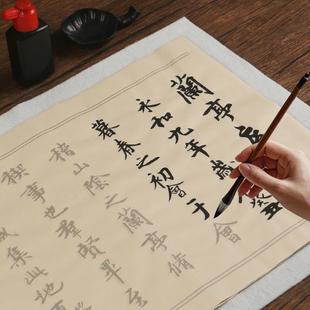 蘭亭序
永和九年歲癸丑
暮春之初會于會
稽山陰之蘭亭脩
稧事也羣賢畢至
集此地